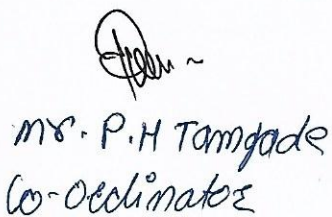 Mr. P.H Tamgade
Co-ordinator